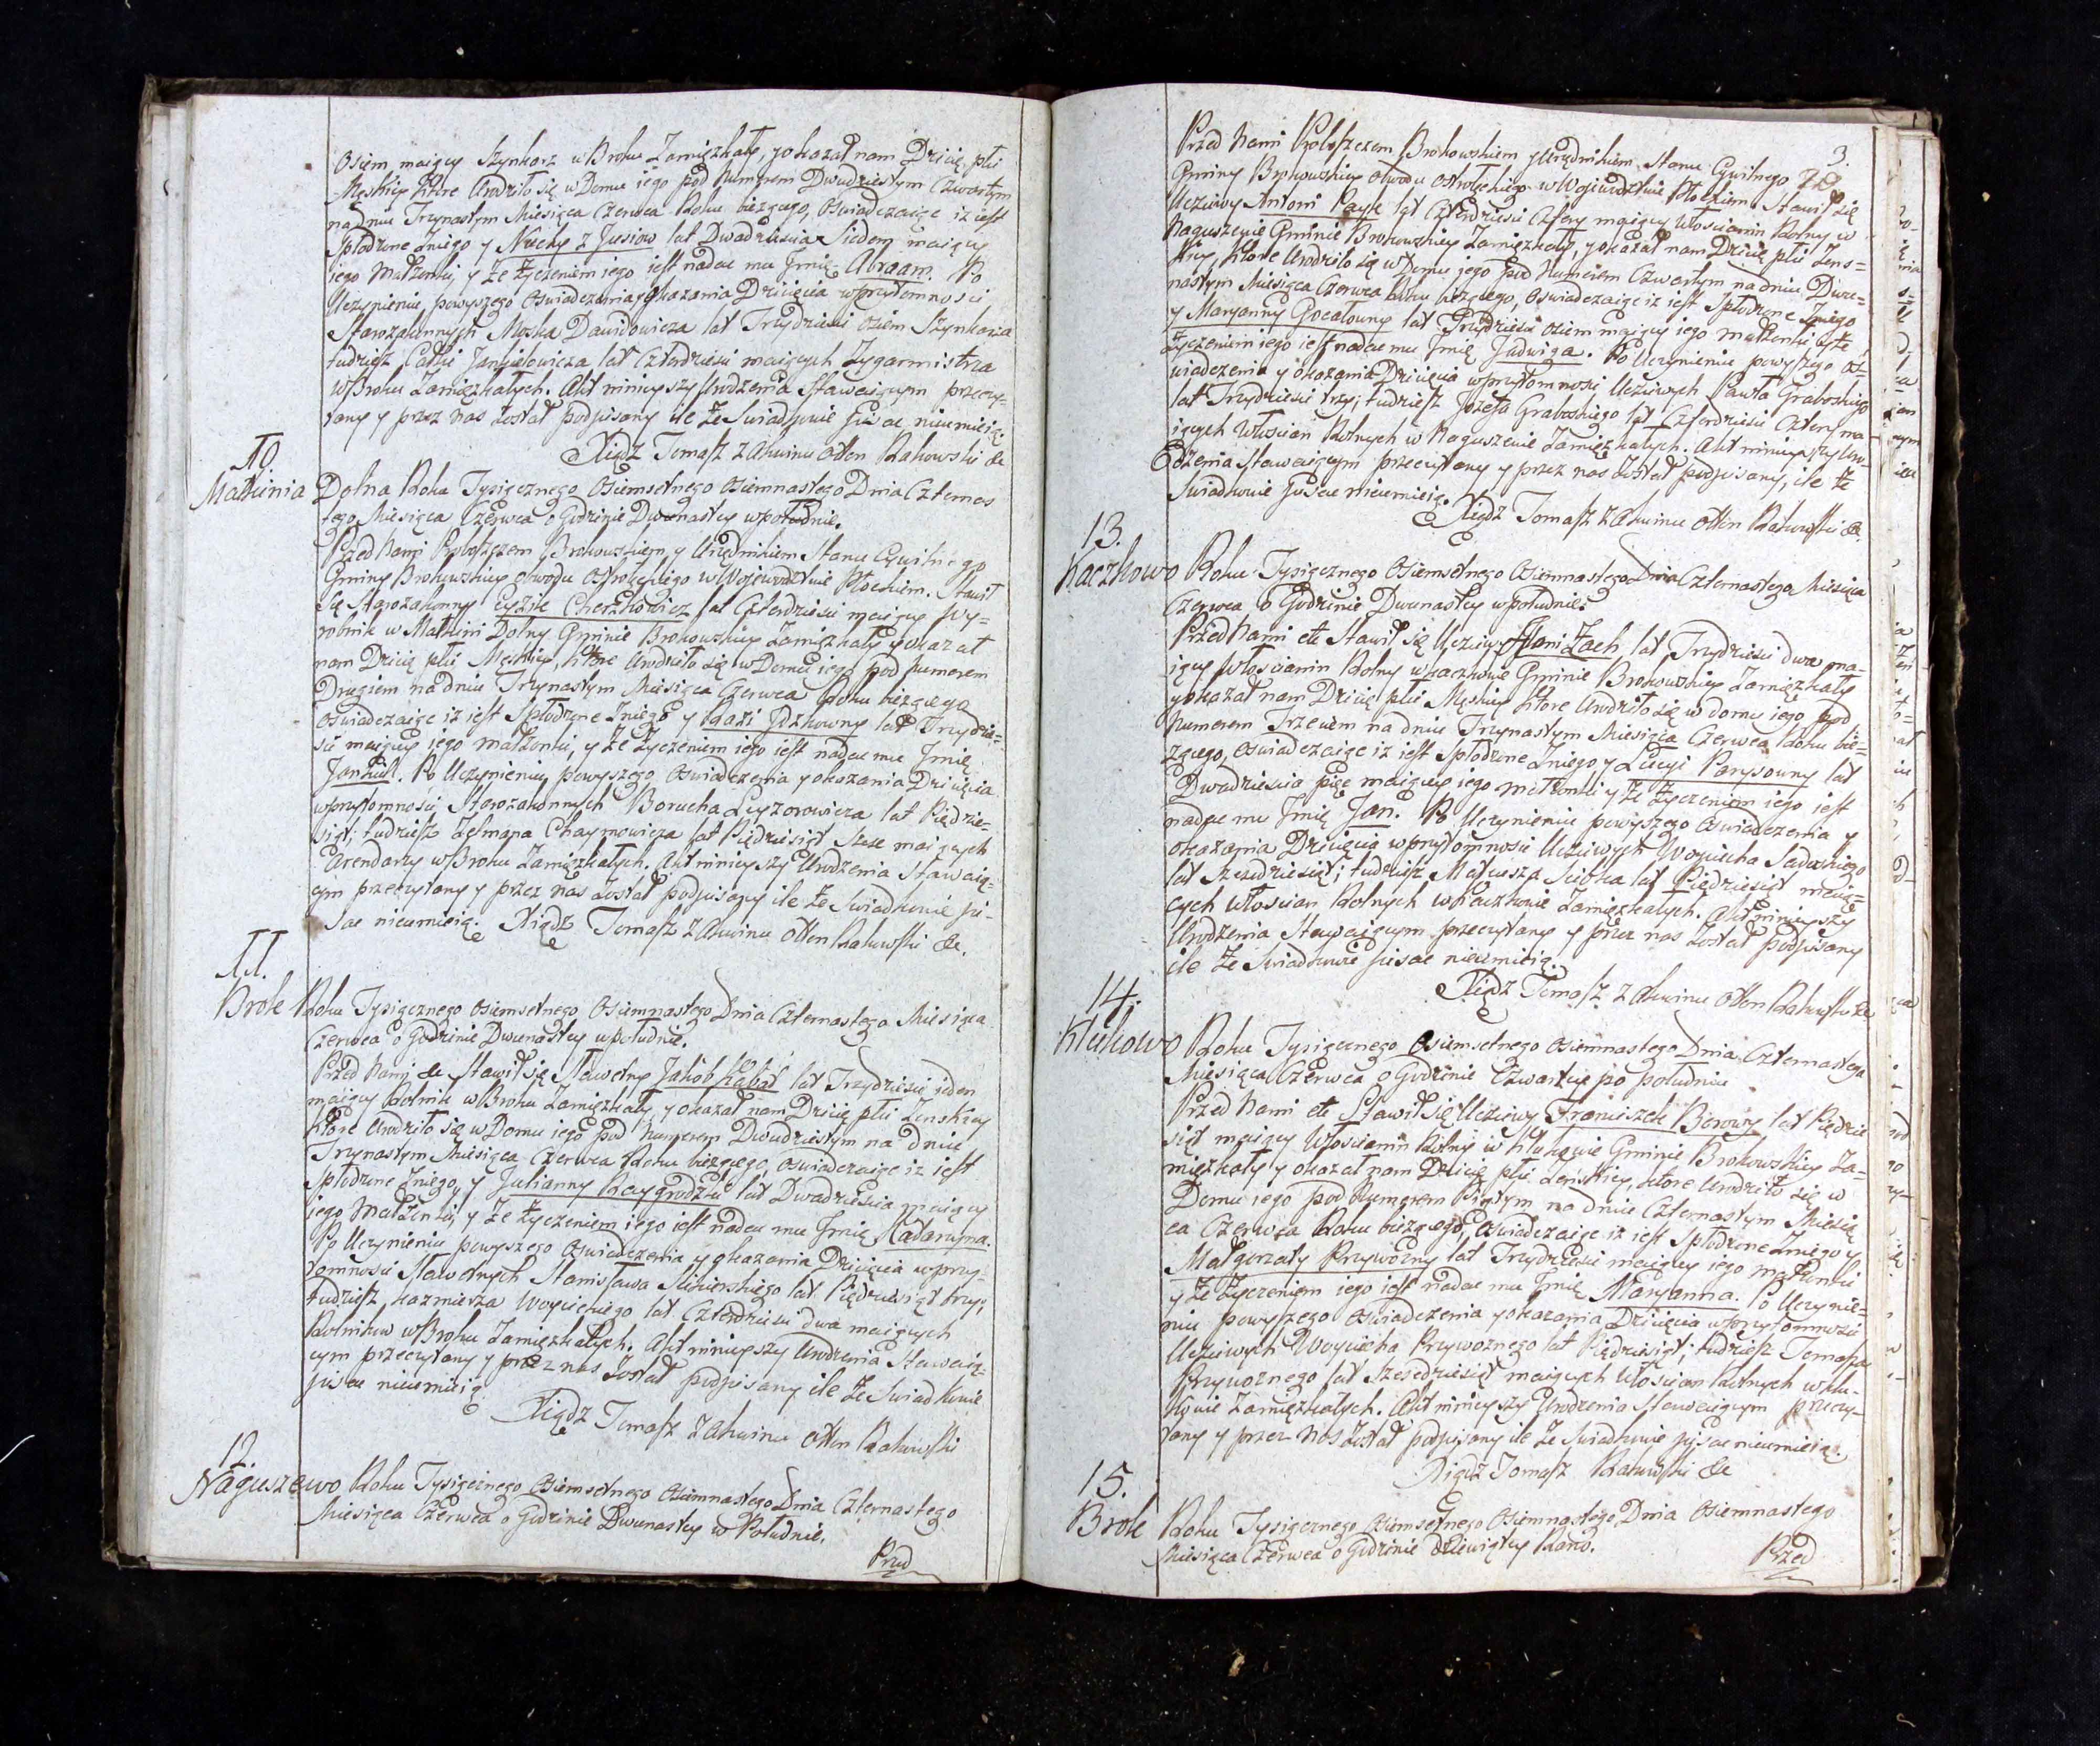 Osiem maiący Szynkarz w Broku Zamięszkały, y okazał nam Dziecię płci
Męskiey które Urodziło się w Domu iego pod Numerem Dwudziestym Czwartym
na dniu Trzynastym Miesiąca Czerwca Roku bieżącego, Oswiadczaiąc iż iest
Spłodzone Zniego y Nuchy z Jusiow lat Dwadzieścia Siedem maiącey
iego Małżonki, y że życzeniem iego iest nadać mu Jmię Abraam. Po
Uczynieniu powyższego Oswiadczenia y okazania Dziecięcia wprzytomności
Starozakonnych Moska Dawidowicza lat Trzydzieści Osiem Szynkarza
tudzież Jankielowicza lat Czterdzieści maiących Zygarmistrza
w Broku Zamięszkałych. Akt ninieyszy Urodzenia Stawaiącym przeczy-
tany y przez nas Został podpisany ile że Swiadkowie Pisać nieumieią.
Xiądz Tomasz z Akwinu Otton Rakowski &c
10.
Małkinia Dolna Roku Tysiącznego Osiemsetnego Osiemnastego Dnia Czternas
tego Miesiąca Czerwca o Godzinie Dwunastey w południe.
Przed Nami Proboszczem Brokowskiem y Urzędnikiem Stanu Cywilnego
Gminy Brokowskiey obwodu Ostrołęckiego w Woiewodztwie Płockiem. Stawił
Się Starozakonny Eyzik Cherszkowicz lat Czterdzieści maiący Wy-
robnik w Małkini Dolny Gminie Brokowskiey Zamięszkały y okazał
nam Dziecię płci Męskiey, które Urodziło się w Domu iego pod Numerem
Drugiem na dniu Trzynastym Miesiąca Czerwca Roku bieżącego
Oswiadczaiąc iż iest Spłodzone Zniego y Łaźi Jdzkowny lat Trzydzie-
ści maiącey iego małżonki, y że życzeniem iego iest nadać mu Jmię
Jankiell. Po Uczynieniu powyższego Oswiadczenia y okazania Dziecięcia
wprzytomności Starozakonnych Borucha Leyzorowicza lat Pięćdzie-
siąt; tudzież Zelmana Chaymowicza lat Pięćdziesiąt Sześć maiących
Arendarzy w Broku Zamięszkałych. Akt ninieyszy Urodzenia Stawaią-
cym przeczytany y przez nas Został podpisany ile że Swiadkowie pi-
sać nieumieią. Xiądz Tomasz z Akwinu Otton Rakowski &c.
11.
Brok Roku Tysiącznego Osiemsetnego Osiemnastego Dnia Czternastego Miesiąca
Czerwca o Godzinie Dwunastey w południe.
Przed Nami &c Stawił się Sławetny Jakób Kabat lat Trzydzieści ieden
maiący Rolnik w Broku Zamięszkały, y okazał nam Dziecię płci Żeńskiey
które Urodziło się w Domu iego pod Numerem Dwudziestym na dniu
Trzynastym Miesiąca Czerwca Roku bieżącego, oswiadczaiąc iż iest
Spłodzone Zniego, y Julianny Raygrodzki lat Dwadzieścia maiącey
iego Małżonki, y że życzeniem iego iest nadać mu Jmię Katarzyna.
Po Uczynieniu powyższego Oswiadczenia y okazania Dziecięcia wprzy-
tomności Sławetnych Stanisława lat Pięćdziesiąt trzy;
tudzież Kazmierza Woycickiego lat Czterdzieści dwa maiących
Rolników w Broku Zamięszkałych. Akt ninieyszy Urodzenia Stawaią-
cym przeczytany y przez nas Został podpisany ile że Swiadkowie
pisać nieumieią
Xiądz Tomasz z Akwinu Otton Rakowski
12.
Naguszewo Roku Tysiącznego Osiemsetnego Osiemnastego Dnia Czternastego
Miesiąca Czerwca o Godzinie Dwunastey w Południe.
Przed
3.
Przed Nami Proboszczem Brokowskiem y Urzędnikiem Stanu Cywilnego
Gminy Brokowskiey Obwodu Ostrołęckiego w Woiewodztwie Płockiem Stawił się
Uczciwy Antoni Payk lat Czterdzieści Cztery maiący Włościanin Rolny w
Naguszewie Gminie Brokowskiey Zamięszkały, y okazał nam Dziecię płci Żens=
kiey, które Urodziło się w Domu iego pod Numerem Czwartym na dniu Dwu=
nastym Miesiąca Czerwca Roku bieżącego, Oswiadczaiąc iż iest Spłodzone Zniego
y Maryanny Gocałowny lat Trzydzieści osiem maiącey iego małżonki y że
życzeniem iego iest nadać mu Jmię Jadwiga. Po Uczynieniu powyższego Os-
wiadczenia y okazania Dziecięcia wprzytomności Uczciwych Pawła Grabowskiego
lat Trzydzieści trzy; tudzież Jozefa Grabowskiego lat Czterdzieści Cztery ma-
iących Włościan Rolnych w Naguszewie Zamięszkałych. Akt ninieyszy Uro-
dzenia Stawaiącym przeczytany y przez nas Został podpisany, ile że
Swiadkowie pisać nieumieią.
Xiądz Tomasz z Akwinu Otton Rakowski &c.
13.
Kaczkowo Roku Tysiącznego Osiemsetnego Osiemnastego Dnia Czternastego Miesiąca
Czerwca o Godzinie Dwunastey w południe.
Przed Nami etc Stawił się Uczciwy Żach lat Trzydzieści dwa ma-
iący Włościanin Rolny w Kaczkowie Gminie Brokowskiey Zamięszkały
y okazał nam Dziecię płci Męskiey które Urodziło się w domu iego pod
Numerem Trzeciem na dniu Trzynastym Miesiąca Czerwca Roku bie=
żącego, oswiadczaiąc iż iest Spłodzone Zniego y Łucyi Parysowny lat
Dwadzieścia pięć maiącey iego małżonki y że życzeniem iego iest
nadać mu Jmię Jan. Po Uczynieniu powyższego Oswiadczenia y
okazania Dziecięcia wprzytomności Uczciwych Woyciecha Sadowskiego
lat Sześćdziesiąt; tudzież Mateusza Scibka lat Pięćdziesiąt maią=
cych Włościan Rolnych w Kaczkowie Zamięszkałych. Akt ninieyszy
Urodzenia Stawaiącym przeczytany y przez nas Został podpisany
ile że Swiadkowie pisać nieumieią.
Xiądz Tomasz z Akwinu Otton Rakowski &c
14.
Klukowo Roku Tysiącznego Osiemsetnego Osiemnastego Dnia Czternastego
Miesiąca Czerwca o Godzinie Czwartey po południu
Przed Nami etc Stawił się Uczciwy Franciszek Borowy lat Pięćdzie
siąt maiący Włościanin Rolny w Klukowie Gminie Brokowskiey Za-
mięszkały y okazał nam Dziecię płci Żeńskiey, które Urodziło się w
Domu iego pod Numerem Piątym na dniu Czternastym Miesią
ca Czerwca Roku bieżącego, Oswiadczaiąc iż iest Spłodzone Zniego y
Małgorzaty Przywozny lat Trzydzieści maiącey iego małżonki
y że życzeniem iego iest nadać mu Jmię Maryanna. Po Uczynie-
niu powyższego Oswiadczenia y okazania Dziecięcia wprzytomności
Uczciwych Woyciecha Przywoznego lat Pięćdziesiąt; tudzież Tomasza
Przywoznego lat Sześćdziesiąt maiących Włościan Rolnych w Klu-
kowie Zamięszkałych. Akt ninieyszy Urodzenia Stawaiącym przeczy-
tany y przez Nas Został podpisany ile że Swiadkowie pisać nieumieią.
Xiądz Tomasz Rakowski &c
15.
Brok Roku Tysiącznego Osiemsetnego Osiemnastego Dnia Osiemnastego
Miesiąca Czerwca o Godzinie dziewiątey Rano.
Przed